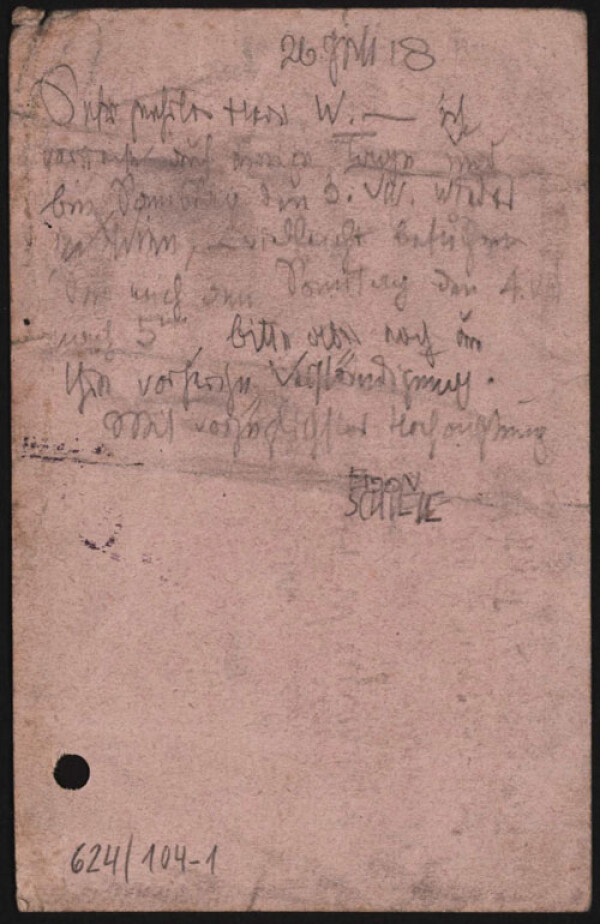 26. Juli 18
Sehr geehrter Herr W. — ich
verreise auf einige Tage und
bin Samstag den 3. VIII. wieder
in Wien, vielleicht besuchen
Sie mich am Sonntag den 4. VIII
nach 5 bitte aber noch um
Ihre vorherige Verständigung.
Mit vorzüglichster Hochachtung
EGON
SCHIELE
624/104-1